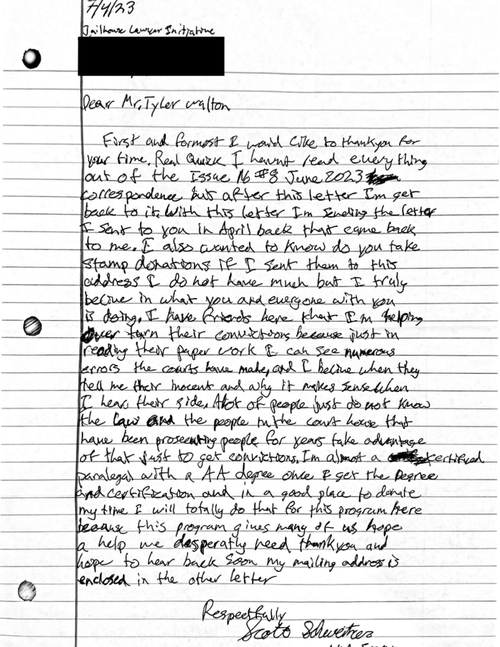 7/4/23
Jailhouse Lawyer Initiative
Dear Mr, Tyler Walton
First and formost I would like to thankyou for
your time. Real Quick I havnt read everything
out of the Issue No #8 June 2023
correspondence but after this letter I'm get
back to it. With this letter I'm sending the letter
I sent to you in April back that came back
to me. I also wanted to know do you take
stamp donations if I sent them to this
address I do not have much but I truly
belive in what you and everyone with you
is doing. I have friends here that I'm helping
over turn their convictions because just in
reading their paper work I can see numerous
errors the courts have made, and I belive when they
tell me their inocent and why it makes sense when
I hear their side. Alot of people just do not know
the law and the people in the court house that
have been prosecuting people for years take advantage
of that just to get convictions. I'm almost a certified
paralegal with a AA degree once I get the Degree
and certification and in a good place to donate
my time I will totally do that for this program here
because this program gives many of us hope
a help we desperatly need thankyou and
hope to hear back soon my mailing address is
enclosed in the other letter
Respectfully